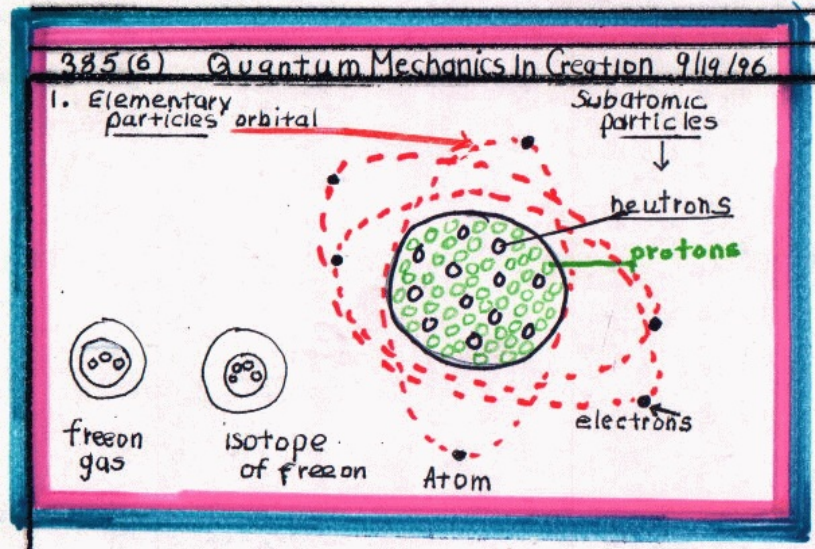 385(6) Quantum Mechanics In Creation 9/19/96
1. Elementary
particles
orbital
Subatomic
particles
neutrons
protons
electrons
freeon
gas
isotope
of freeon
Atom